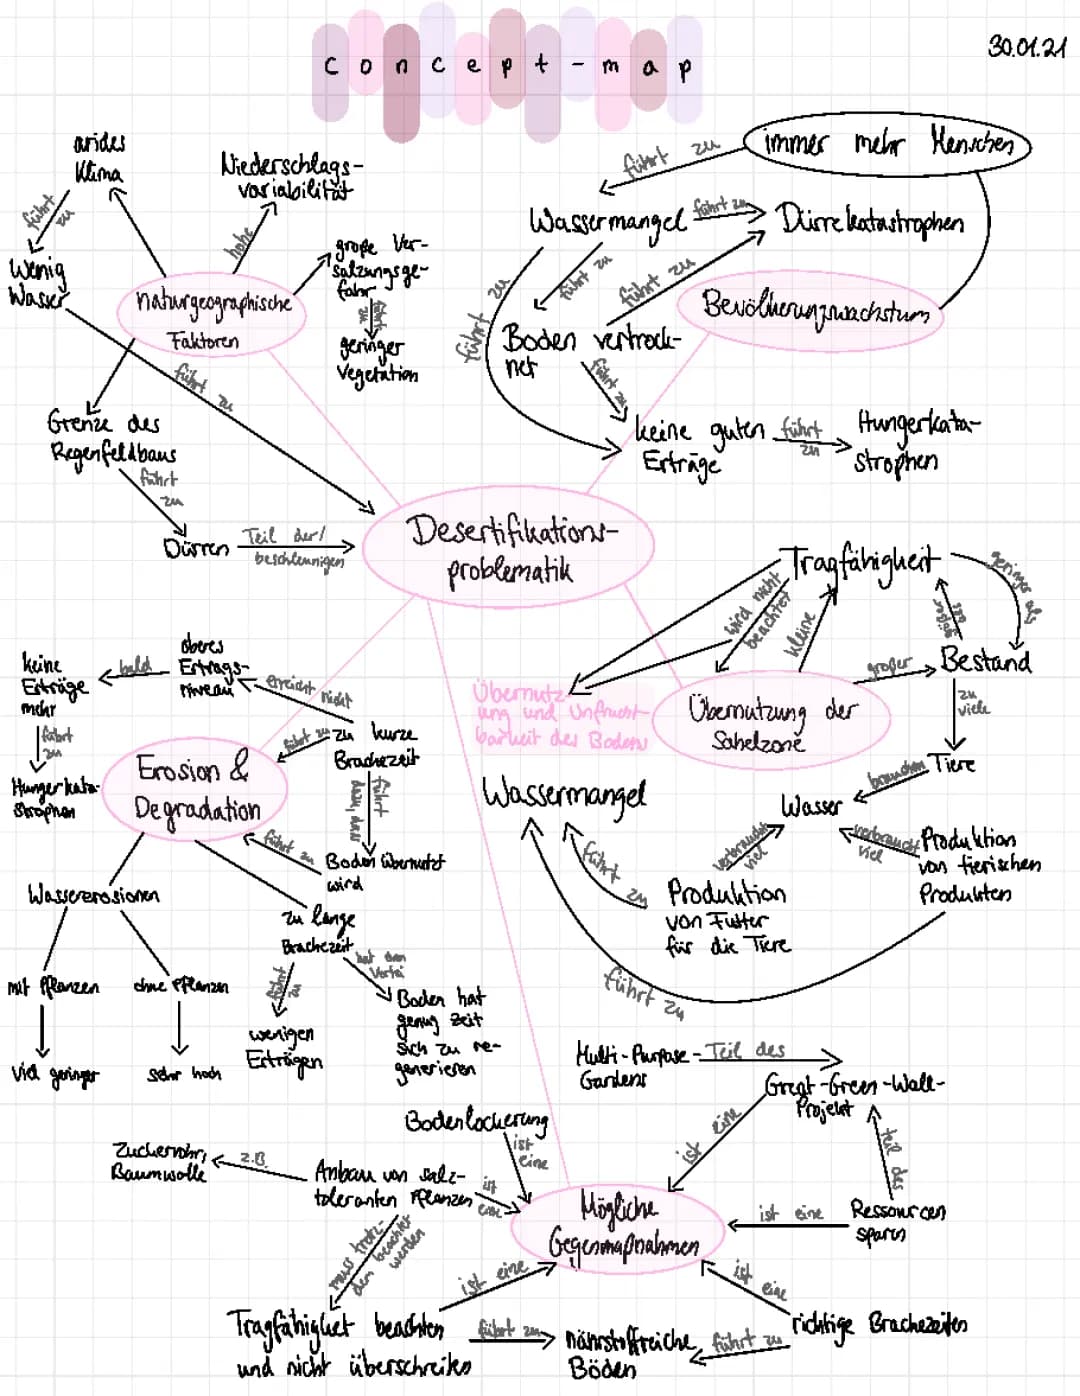 concept-map
30.01.21
arides
Klima
führt
zu
Wenig
Wasser
führt zu
Niederschlags-
variabilität
hohe
große Ver-
salzungsge-
fahr
führt
zu
geringer
Vegetation
naturgeographische
Faktoren
Grenze des
Regenfeldbaus
führt
zu
Dürren
Teil der/
beschleunigen
immer mehr Menschen
führt zu
Wassermangel
führt zu
Dürrekatastrophen
führt zu
führt zu
führt zu
Bevölkerungswachstum
Boden vertrock-
net
führt zu
keine guten
Erträge
führt
zu
Hungerkata-
strophen
Desertifikations-
problematik
Tragfähigkeit
geringer als
wird nicht
beachtet
kleine
großer
Bestand
zu
viele
Tiere
Übernutz-
ung und Unfrucht-
barkeit des Bodens
Übernutzung der
Sahelzone
brauchen
Wasser
verbraucht
viel
verbraucht
viel
Produktion
von tierischen
Produkten
Wassermangel
führt zu
Produktion
von Futter
für die Tiere
führt zu
keine
Erträge
mehr
bald
oberes
Ertrags-
niveau
erreicht nicht
führt
zu
Hungerkata-
strophen
Erosion &
Degradation
führt zu
zu kurze
Brachezeit
führt
dazu, dass
Boden übernutzt
wird
führt zu
Wassererosionen
mit Pflanzen
ohne Pflanzen
viel geringer
sehr hoch
zu lange
Brachezeit
führt
zu
wenigen
Erträgen
hat den
Vorteil
Boden hat
genug Zeit
sich zu re-
generieren
Multi-Purpose-
Gardens
Teil des
Great-Green-Wall-
Projekt
ist eine
teil des
Ressourcen
sparen
ist eine
Bodenlockerung
ist
eine
Zuckerrohr,
Baumwolle
z.B.
Anbau von salz-
toleranten Pflanzen
ist
eine
Mögliche
Gegenmaßnahmen
muss trotz-
dem beachtet
werden
ist eine
Tragfähigkeit beachten
und nicht überschreiten
führt zu
nährstoffreiche
Böden
führt zu
richtige Brachezeiten
ist
eine